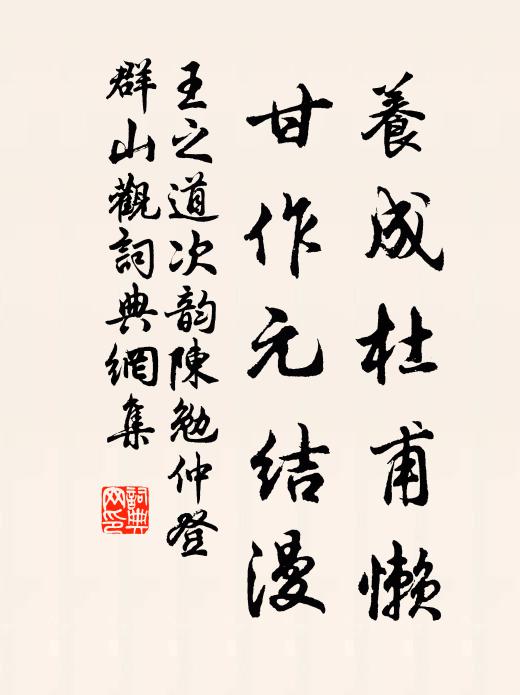 養成杜甫懶
甘作元结漫
王之道次韵陳勉仲登
群山觀詞典網集
詞典
网印